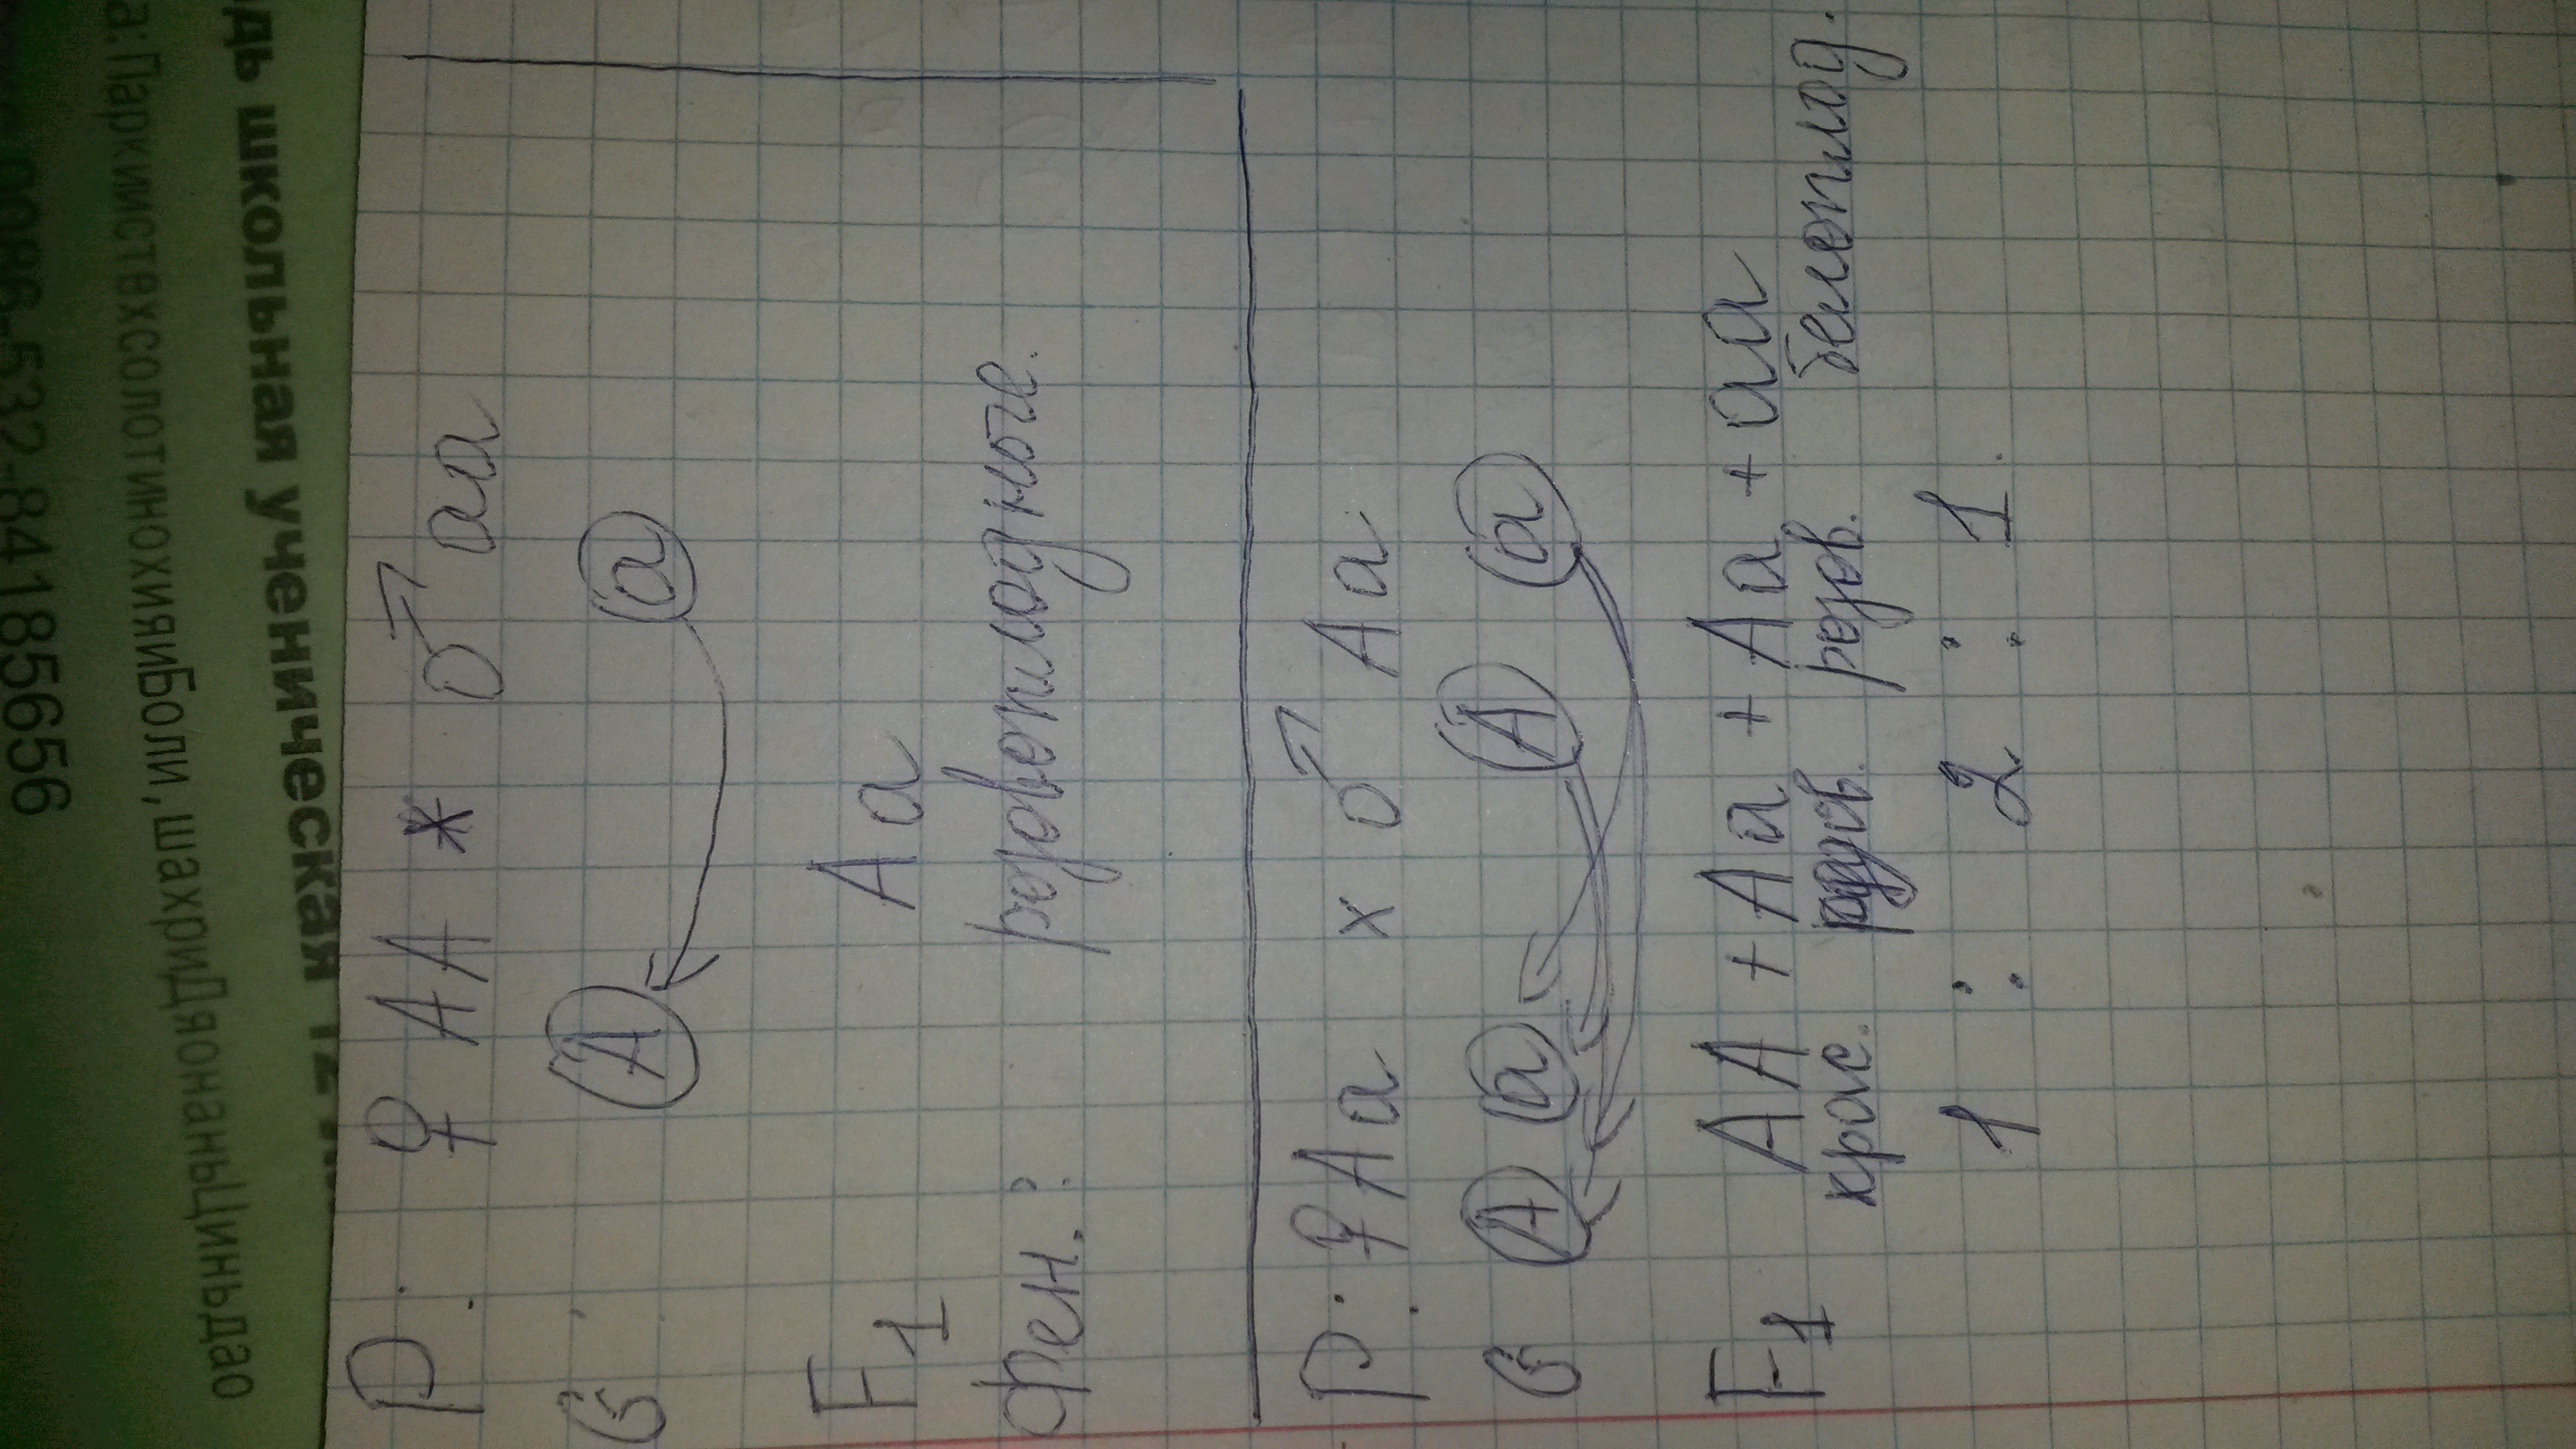 дь школьная ученическая 12 л
а: ПаркимстехсолотинохияиБоли, шахриДяонаньЦиньдао
0086-532-84185656
P: ♀ AA * ♂ aa
G A a
F1 Aa
Фен.: розовоплодные.
P: ♀ Aa x ♂ Aa
G A a A a
F1 AA + Aa + Aa + aa
крас. розов. розов. белоплод.
1 : 2 : 1